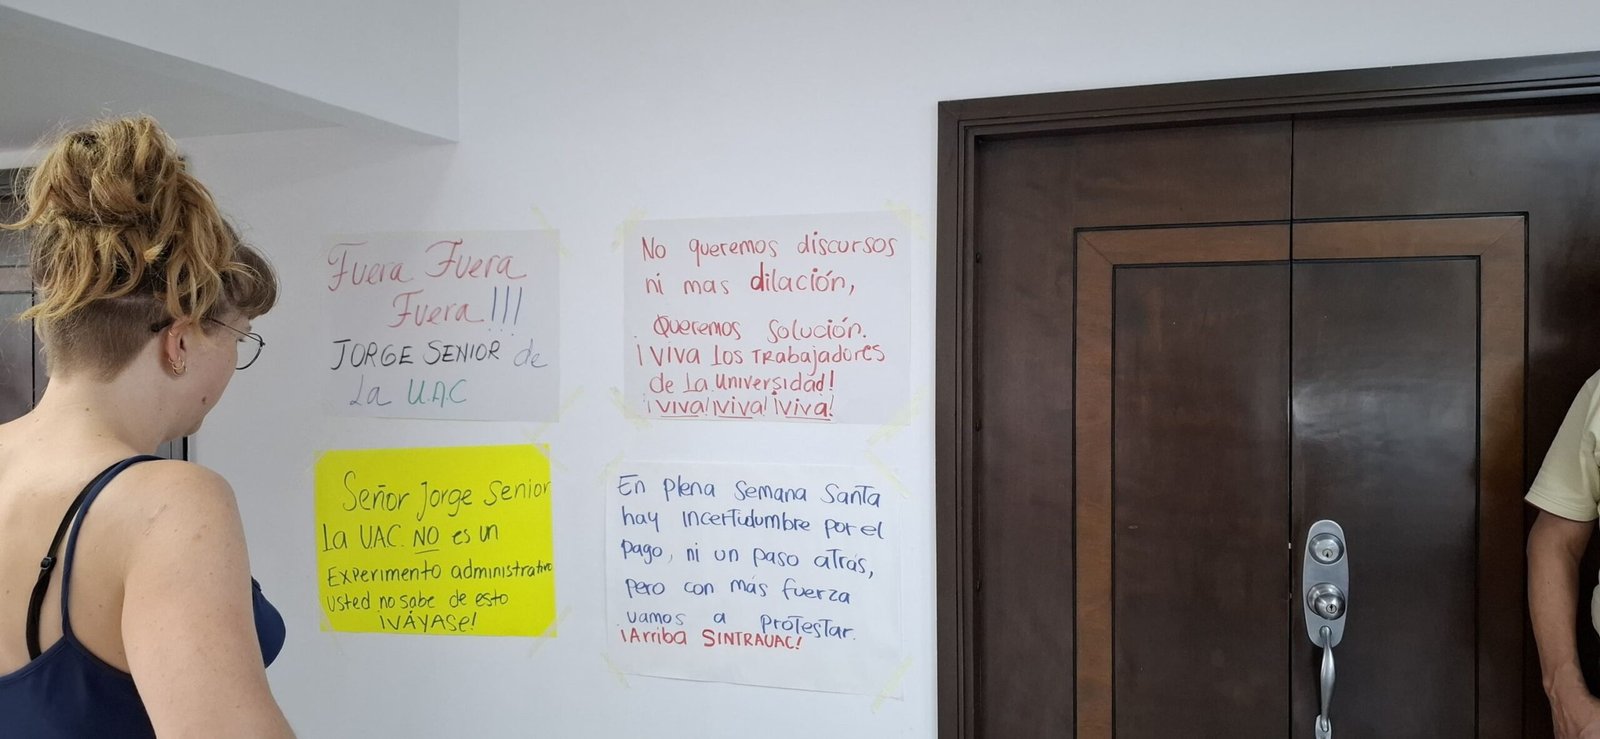 Fuera Fuera
Fuera!!!
JORGE SENIOR de
La U.A.C
No queremos discursos
ni mas dilación,
Queremos solución.
¡VIVA Los TRABAJADORES
de La Universidad!
¡Viva! ¡Viva! ¡Viva!
Señor Jorge Senior
La UAC. NO es un
Experimento administrativo
Usted no sabe de esto
¡VÁYASE!
En plena Semana Santa
hay incertidumbre por el
pago, ni un paso atrás,
pero con más fuerza
vamos a protestar.
¡Arriba SINTRAUAC!